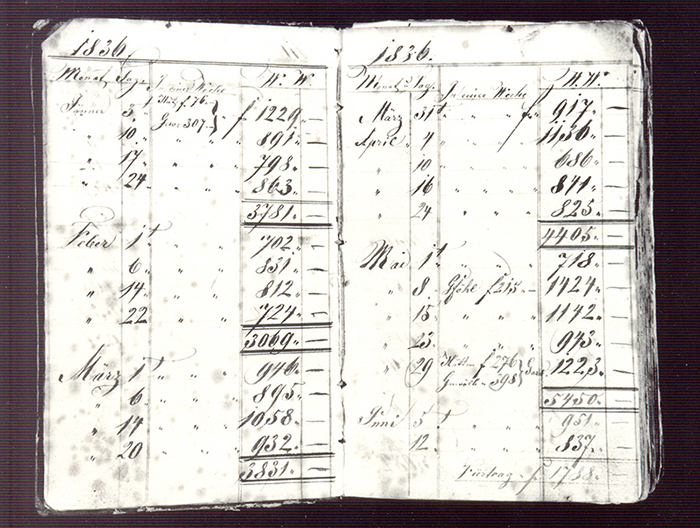 1836.
Monat Tage In einer Woche W. W.
Jänner 3t f 76 „
307 „ „ f 1229 „ —
„ 10. „ „ „ 891 „ —
„ 17 „ „ „ 798 „ —
„ 24 „ „ „ 863 „ —
3781 „ —
Feber 1t „ „ „ 702 „ —
„ 6 „ „ „ 831 „ —
„ 14 „ „ „ 812 „ —
„ 22 „ „ 724 „ —
3069 „ —
März 1t „ „ 946 „ —
„ 6 „ „ „ 895 „ —
„ 14 „ „ „ 1058 „ —
„ 20 „ „ „ 932 „ —
3831 „ —
1836.
Monat Tage In einer Woche W. W.
März 31t „ „ f 917 „ —
April 4 „ „ „ 1136 „ —
„ 10 „ „ „ 686 „ —
„ 16 „ „ „ „ 841 „ —
„ 24 „ „ „ 825 „ —
4405 „ —
Mai 1t „ „ „ 718 „ —
„ 8 Gföhl f 215 — 1424 „ —
„ 15 „ „ „ 1142 „ —
„ 23 „ „ „ 943 „ —
„ 29 f 276
398 1223 „ —
5450 „ —
Juni 5t „ „ 951 „ —
„ 12 „ „ „ 837 „ —
Fürtrag f 1788 „ —